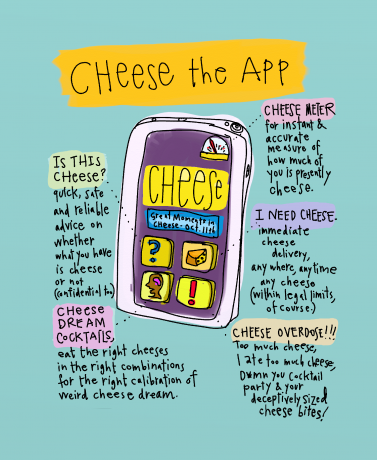 CHEESE THE APP
CHEESE METER
for instant &
accurate
measure of
how much of
you is presently
cheese.
IS THIS
CHEESE?
quick, safe
and reliable
advice on
whether
what you have
is cheese
or not
(confidential too)
CHEESE
Great Moments in
CHEESE - Oct. 11th
?
!
I NEED CHEESE.
immediate
cheese
delivery,
any where, anytime
any cheese
(within legal limits,
of course.)
CHEESE
DREAM
COCKTAILS,
eat the right cheeses
in the right combinations
for the right calibration of
weird cheese dream.
CHEESE OVERDOSE!!!
Too much cheese,
I ate too much cheese,
Damn you cocktail
party & your
deceptively sized
cheese bites!